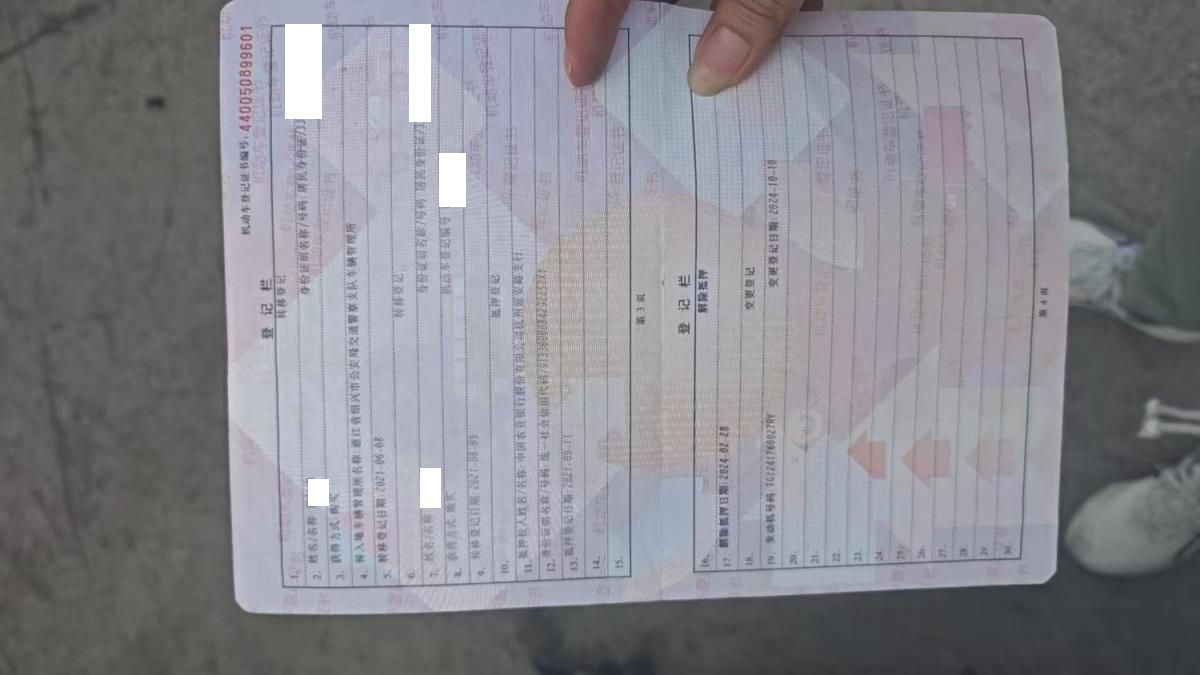 机动车登记证书编号:440050899601
登 记 栏
1. 转移登记
2. 姓名/名称 身份证明名称/号码 居民身份证/33
3. 获得方式 购买
4. 转入地车辆管理所名称:浙江省绍兴市公安局交通警察支队车辆管理所
5. 转移登记日期:2021-06-08
6. 转移登记
7. 姓名/名称 身份证明名称/号码 居民身份证/33
8. 获得方式 购买 机动车登记编号
9. 转移登记日期 2021-08-09
10. 抵押登记
11. 抵押权人姓名/名称:中国农业银行股份有限公司杭州延安路支行
12. 身份证明名称/号码 统一社会信用代码
13. 抵押登记日期:2021-09-11
14.
15.
第 3 页
登 记 栏
16. 解除抵押
17. 解除抵押日期:2024-02-28
18. 变更登记
19. 发动机号码 变更登记日期:2024-10-10
20.
21.
22.
23.
24.
25.
26.
27.
28.
29.
30.
第 4 页